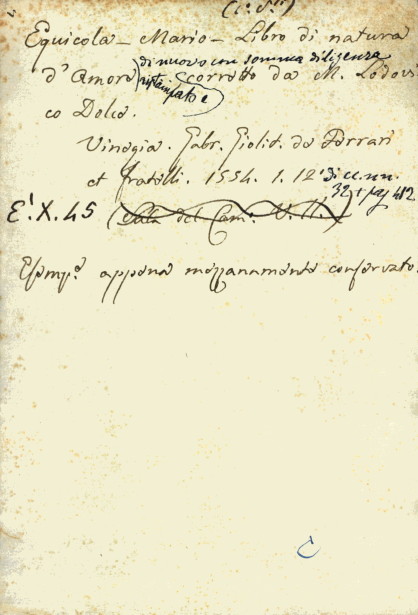 Equicola - Mario - Libro di natura
di nuovo con somma diligenza
d'Amore ristampato e corretto da M. Lodovi
co Dolce.
Vinegia. Gabr. Giolit. de Ferrari
et fratelli. 1554. 1. 12° di cc. nn.
32 + pag 412
E'. X. 45 (Sala del Cam. V. II.)
Esemp.e appena mezzanamente conservato.
C